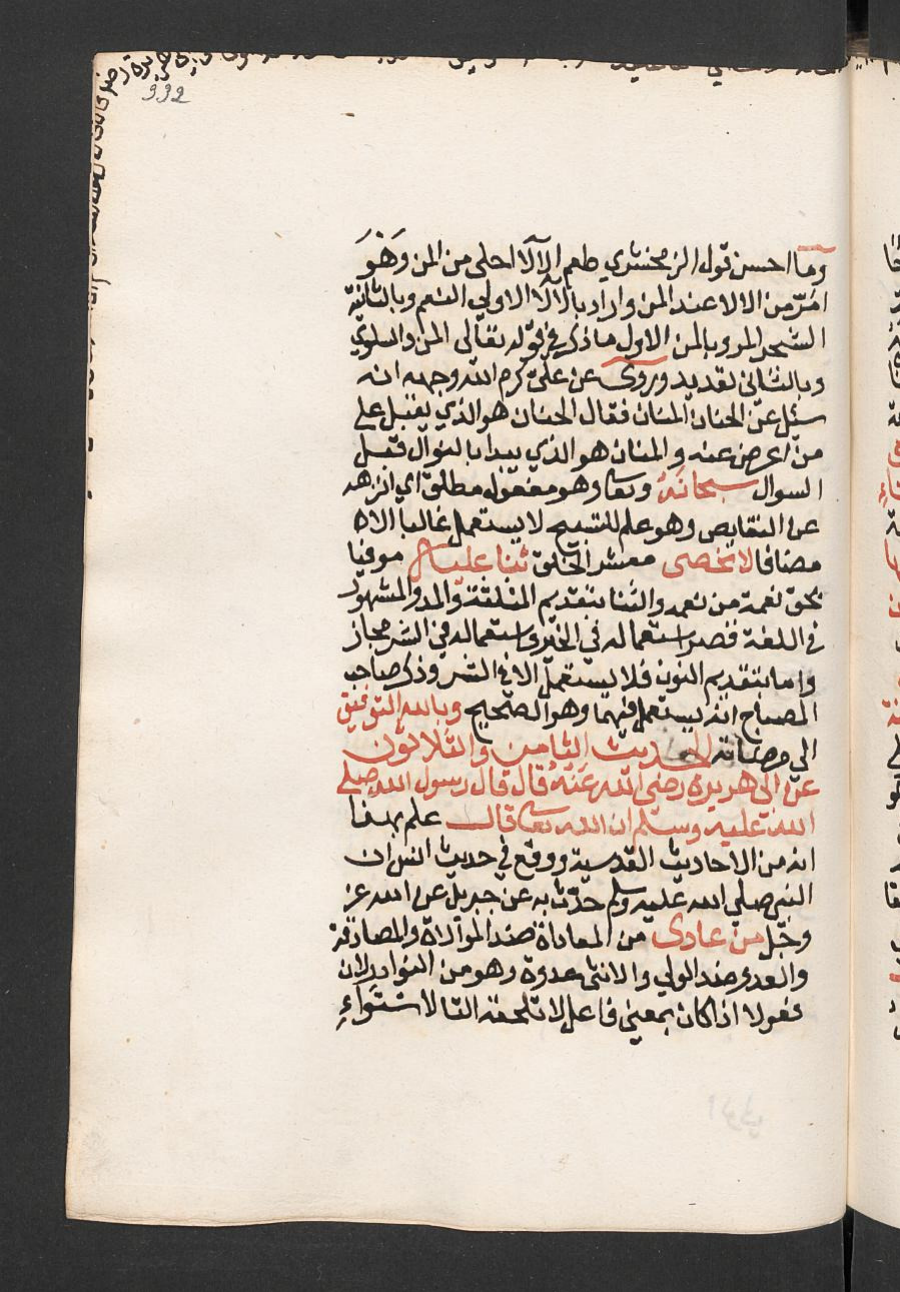 332
وما احسن قول الزمخشري طعم الآلاء احلى من المن وهو
امر من الالا عند المن واراد بالالا الاولي النعم وبالثانية
الشجر المر وبالمن الاول ما ذكر في قوله تعالى المن والسلوي
وبالثاني تعديد وروى عن علي كرم الله وجهه انه
سئل عن الحنان المنان فقال الحنان هو الذي يقبل علي
من اعرض عنه والمنان هو الذي يبدا بالنوال قبل
السوال سبحانه وتعا وهو مفعول مطلق اي انزهه
عن النقايص وهو علم للتسبيح لا يستعمل غالبا الا
مضافا لا نحصى معشر الخلق ثنا عليك موفيا
بحق نعمة من نعمه والثنا بتقديم المثلثة والمد والمشهور
في اللغة قصر استعماله في الخير واستعماله في الشر مجاز
واما بتقديم النون فلا يستعمل الا في الشر وذكر صاحب
المصباح انه يستعمل فيهما وهو الصحيح وبالله التوفيق
الي مرضاته الحديث الثامن والثلاثون
عن ابى هريرة رضى الله عنه قال قال رسول الله صلي
الله عليه وسلم ان الله تعا قال علم بهذا
انه من الاحاديث القدسية ووقع في حديث انس ان
النبي صلي الله عليه وسلم حدث به عن جبريل عن الله عز
وجل من عادى من المعاداة ضد الموالاة والمصادقة
والعدو ضد الولي والانثى عدوة وهو من النوادر لان
فعولا اذا كان بمعنى فاعل لا تلحقه التا لاستواء